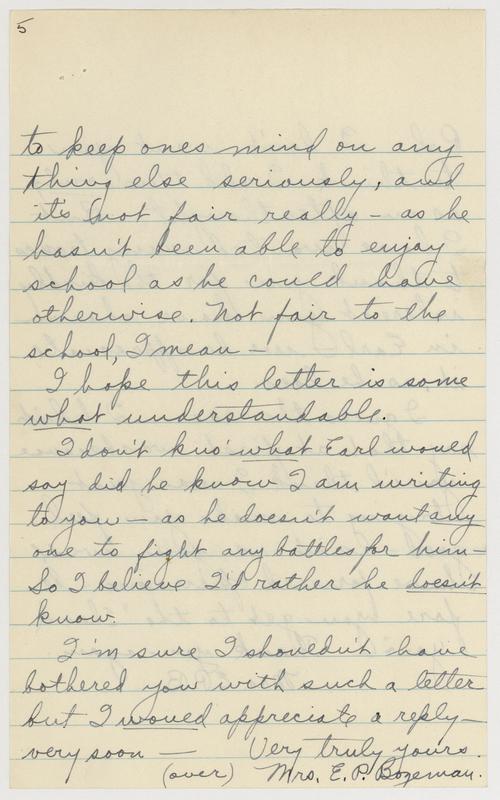 5
to keep ones mind on any
thing else seriously, and
it's not fair really - as he
hasn't been able to enjoy
school as he could have
otherwise. Not fair to the
school, I mean -
I hope this letter is some
what understandable.
I don't kno' what Earl would
say did he know I am writing
to you - as he doesn't want any
one to fight any battles for him -
So I believe I'd rather he doesn't
know.
I'm sure I shouldn't have
bothered you with such a letter
but I would appreciate a reply -
very soon - Very truly yours.
(over) Mrs. E. P. Bozeman.